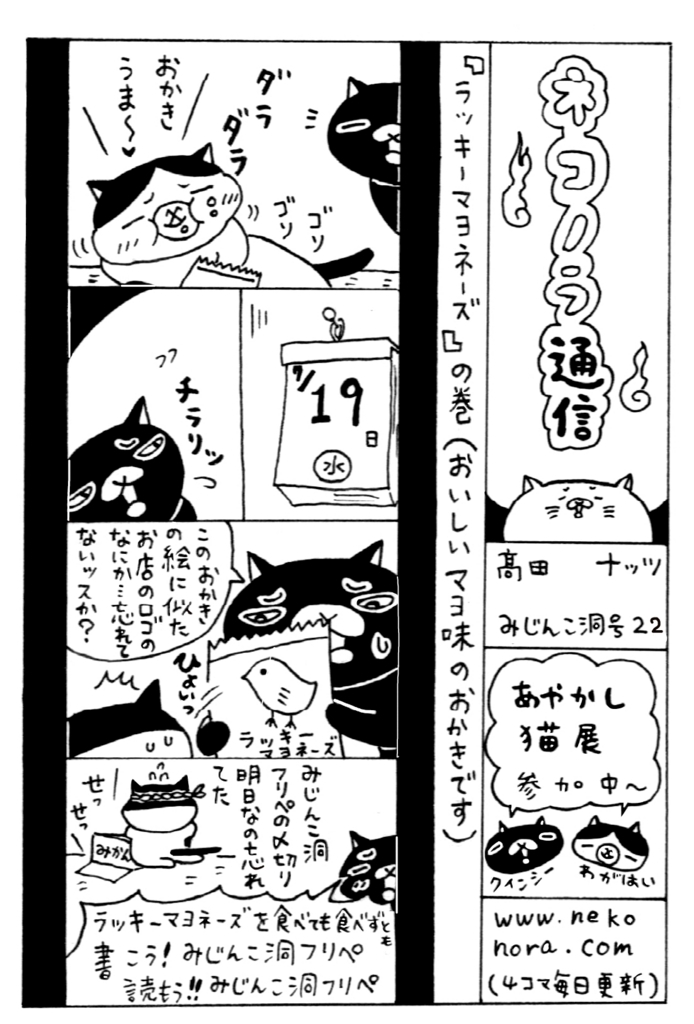 ネコノラ通信
高田 ナッツ
みじんこ洞号22
あやかし
猫展
参加中〜
クインシー
わがはい
www.neko
nora.com
(4コマ毎日更新)
『ラッキーマヨネーズ』の巻(おいしいマヨ味のおかきです)
ダラ
ダラ
おかき
うま〜♥
ゴソ
ゴソ
7/19
日
水
チラリッ
このおかき
の絵に似た
お店のロゴの
なにか…忘れて
ないッスか?
ひょいっ
ラッキー
マヨネーズ
みじんこ洞
フリペの〆切り
明日なの忘れ
てた
せっ
せっ
みかん
ラッキーマヨネーズを食べても食べずとも
書こう!みじんこ洞フリペ
読もう!!みじんこ洞フリペ